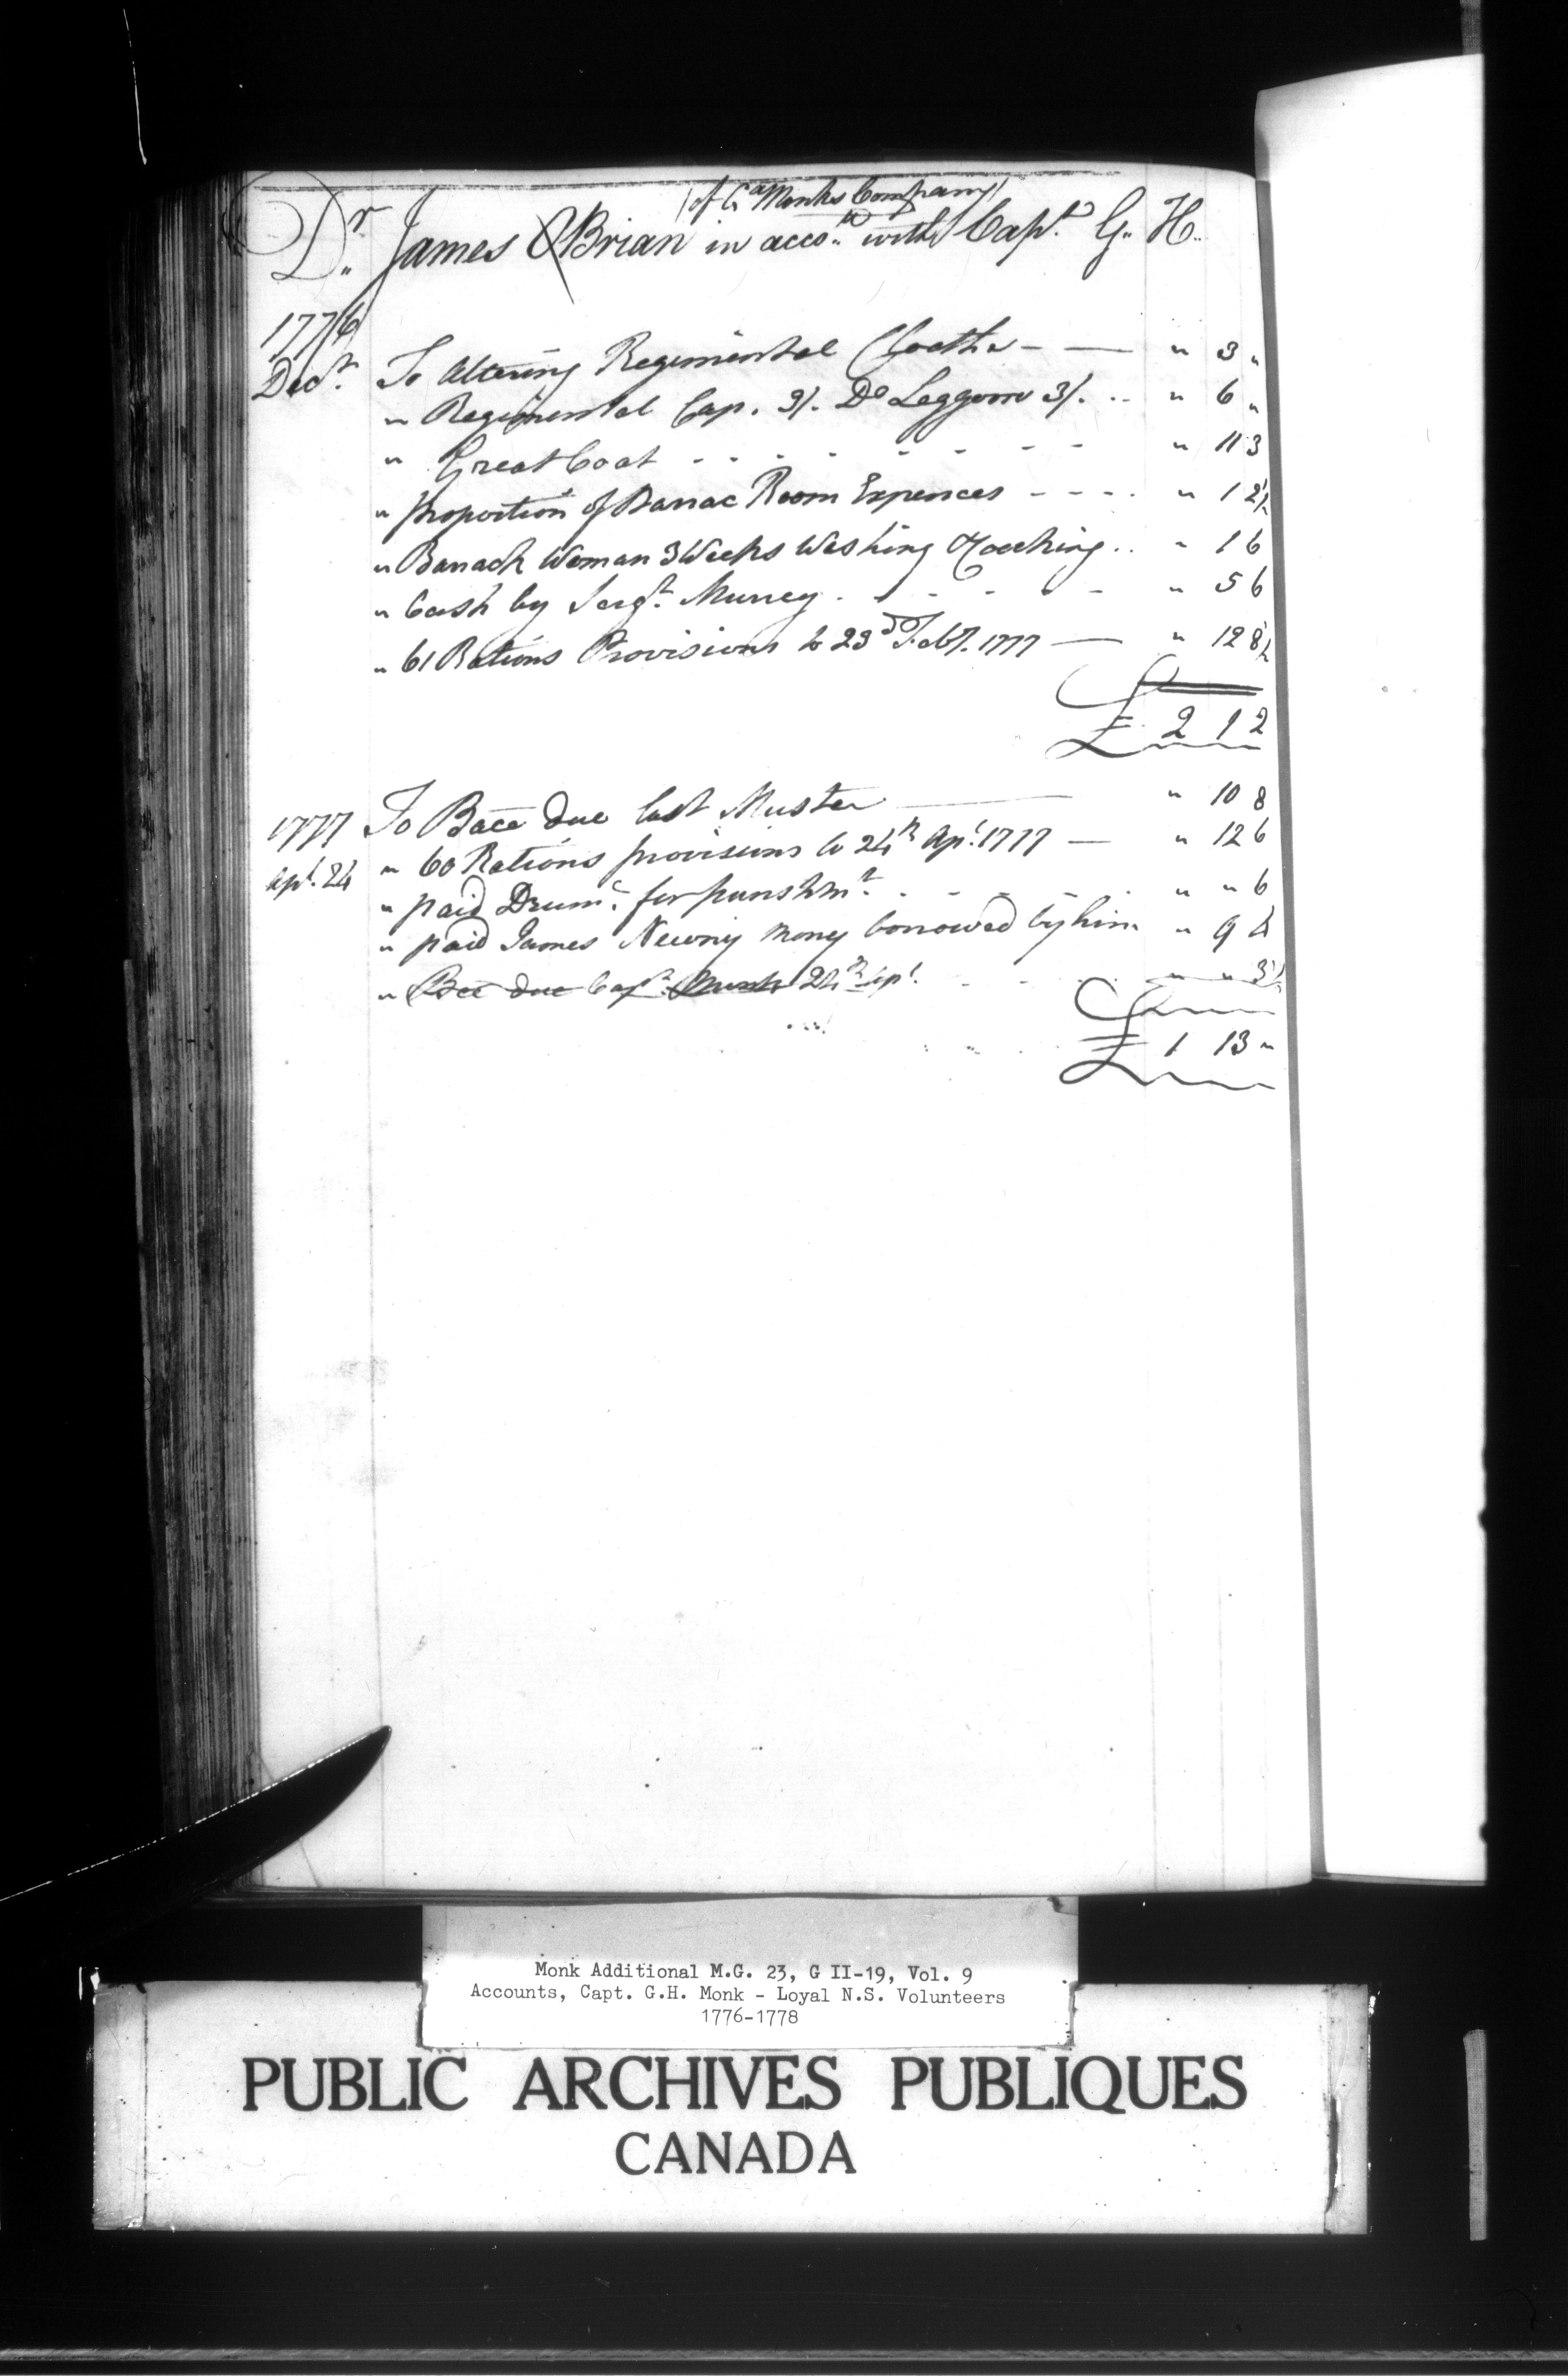 (of Ca Monks Company)
Dr James OBrian in acco. with Capt. G. H.
1776
Decr. To Altering Regimental Cloaths - — " 3 "
" Regimental Cap. 3/. Do Leggons 3/. .. " 6 "
" Great Coat - - - - - - - - " 11 3
" proportion of Barrac Room Expences - - - - " 1 2½
" Barrack Woman 3 Weeks Washing & Cooking .. " 1 6
" Cash by Sergt. Murrey - - - - - " 5 6
" 61 Rations Provisions to 23d Feby. 1777 — " 12 8½
£ 2 1 2
1777 To Bace due last Muster — " 10 8
Apl. 24 " 60 Rations provisions to 24th Apl. 1777 — " 12 6
" paid Drumr. for punshmt. - - - - - " " 6
" paid James Newry mony borrowed by him " 9 4
" Bce due Capt. Monk 24th Apl. - - - " " 3½
£ 1 13 "
Monk Additional M.G. 23, G II-19, Vol. 9
Accounts, Capt. G.H. Monk - Loyal N.S. Volunteers
1776-1778
PUBLIC ARCHIVES PUBLIQUES
CANADA